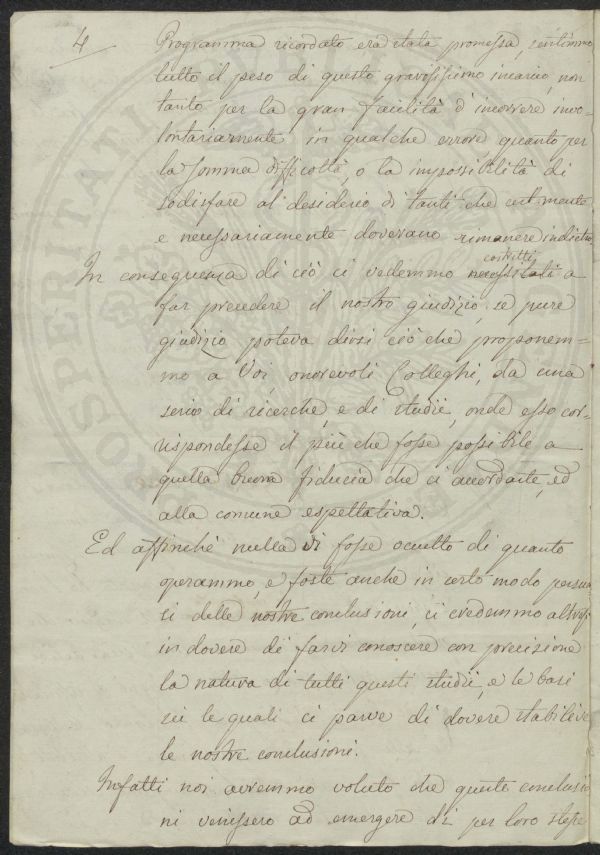 4
Programma ricordato era stata promessa, sentimmo
tutto il peso di questo gravissimo incarico, non
tanto per la gran facilità d'incorrere invo-
lontariamente in qualche errore quanto per
la somma difficoltà, o la impossibilità di
sodisfare al desiderio di tanti che certamente
e necessariamente dovevano rimanere indietro
In conseguenza di ciò ci vedemmo necessitati a
costretti
far precedere il nostro giudizio, se pure
giudizio poteva dirsi ciò che proponem-
mo a Voi, onorevoli Colleghi, da una
serie di ricerche, e di studii, onde esso cor-
rispondesse il più che fosse possibile a
quella buona fiducia che ci accordaste, ed
alla comune espettativa.
Ed affinchè nulla vi fosse occulto di quanto
operammo, e foste anche in certo modo persua
si delle nostre conclusioni, ci credemmo altresì
in dovere di farvi conoscere con precisione
la natura di tutti questi studii, e le basi
su le quali ci parve di dovere stabilire
le nostre conclusioni.
Infatti noi avremmo voluto che queste conclusio
ni venissero ad emergere di per loro stesse
PROSPERITATI